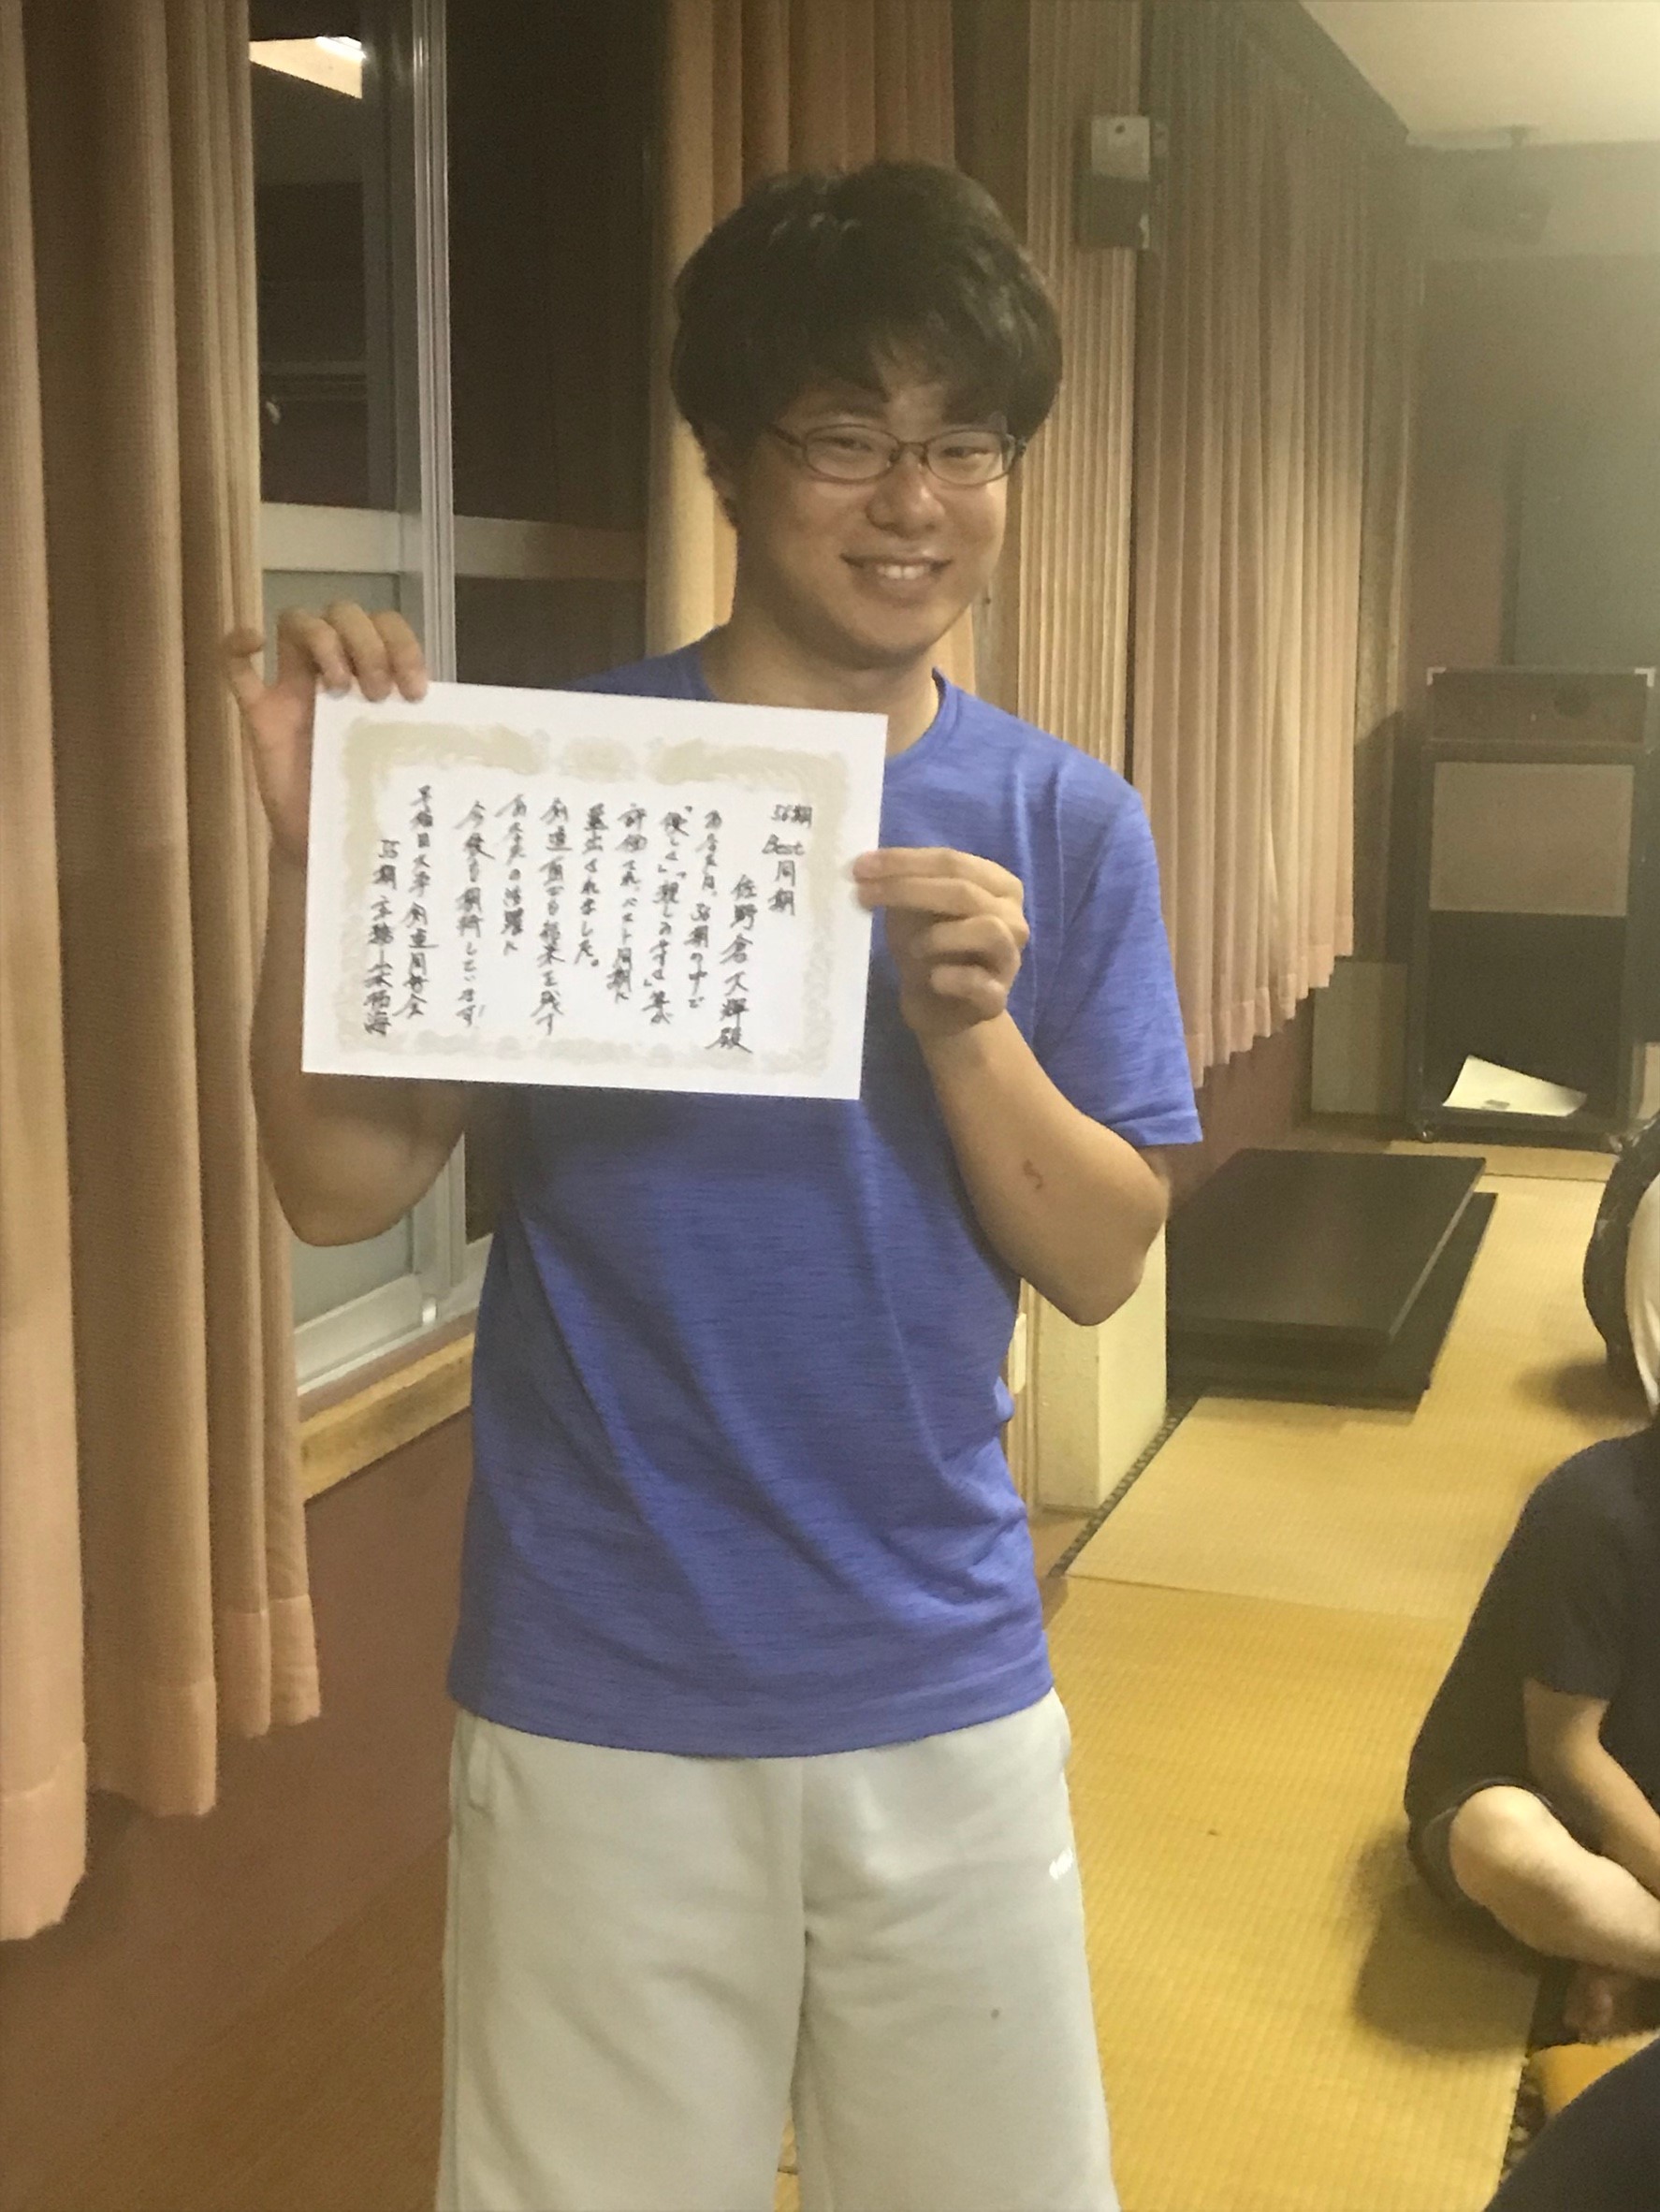 56期
Best 同期
佐野倉大輝殿
あなたは、56期の中で
「優しさ」「親しみやすさ」等が
評価され、ベスト同期に
選出されました。
剣道面でも結果を残す
あなたの活躍に
今後も期待しています
早稲田大学 剣道同好会
56期